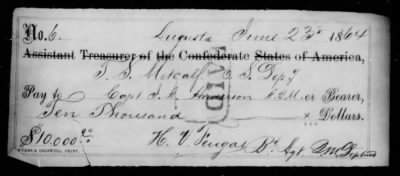 No. 6. Augusta June 23d 1864
Assistant Treasurer of the Confederate States of America,
T. S. Metcalf C. S. Depy
Pay to Capt J. G. Anderson or Bearer,
Ten Thousand Dollars.
$10,000.00 H. V.
EVANS & COGSWELL, PRINT.
PAID